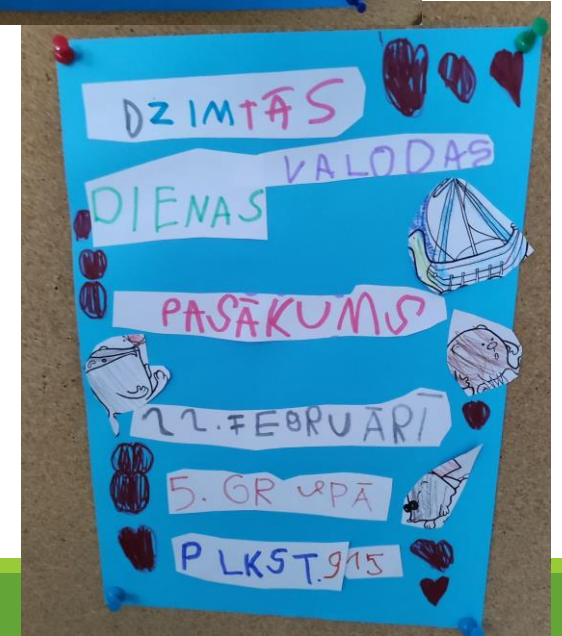 DZIMTĀS
VALODAS
DIENAS
PASĀKUMS
22. FEBRUĀRĪ
5. GRUPĀ
PLKST. 915